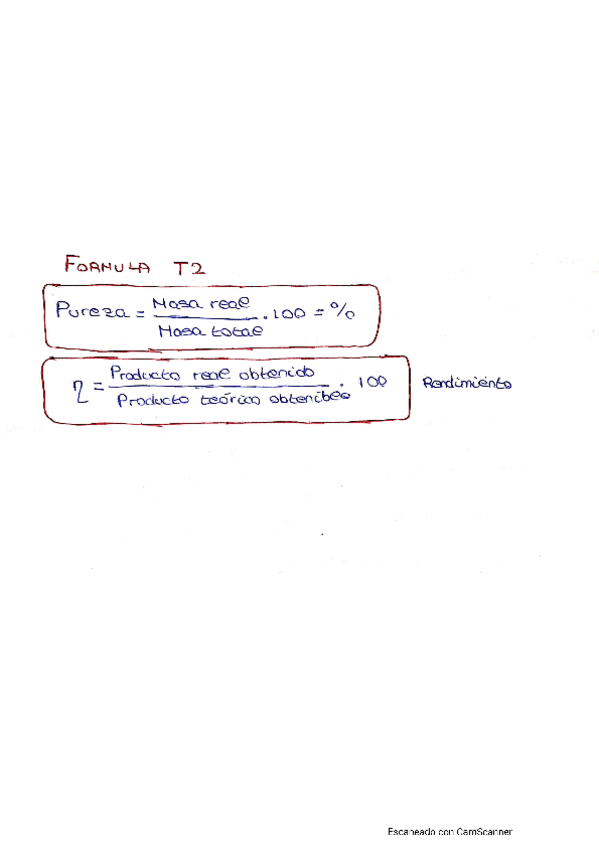 FORMULA T2
Pureza = Masa real / Masa total . 100 = %
η = Producto real obtenido / Producto teórico obtenible . 100 Rendimiento
Escaneado con CamScanner